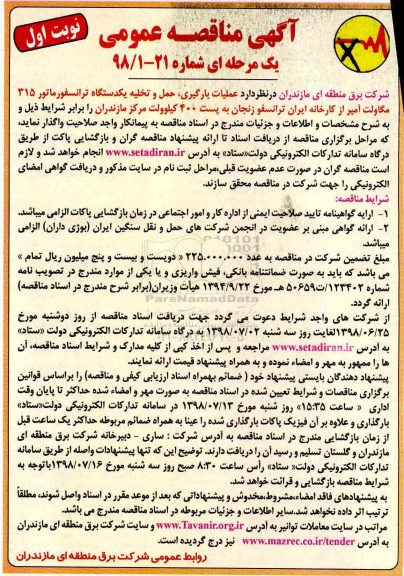 نوبت اول
آگهی مناقصه عمومی
یک مرحله ای شماره ۲۱-۹۸/۱
شرکت برق منطقه ای مازندران درنظردارد عملیات بارگیری، حمل و تخلیه یکدستگاه ترانسفورماتور ۳۱۵
مگاولت آمپر از کارخانه ایران ترانسفو زنجان به پست ۴۰۰ کیلوولت مرکز مازندران را برابر شرایط ذیل و
به شرح مشخصات و اطلاعات و جزئیات مندرج در اسناد مناقصه به پیمانکار واجد صلاحیت واگذار نماید،
که مراحل برگزاری مناقصه از دریافت اسناد تا ارائه پیشنهاد مناقصه گران و بازگشایی پاکت از طریق
درگاه سامانه تدارکات الکترونیکی دولت«ستاد» به آدرس www.setadiran.ir انجام خواهد شد و لازم
است مناقصه گران در صورت عدم عضویت قبلی،مراحل ثبت نام در سایت مذکور و دریافت گواهی امضای
الکترونیکی را جهت شرکت در مناقصه محقق سازند.
شرایط مناقصه:
۱- ارایه گواهینامه تایید صلاحیت ایمنی از اداره کار و امور اجتماعی در زمان بازگشایی پاکات الزامی میباشد.
۲- ارائه گواهی مبنی بر عضویت در انجمن شرکت های حمل و نقل سنگین ایران (بوژی داران) الزامی
میباشد.
مبلغ تضمین شرکت در مناقصه به عدد ۲۲۵.۰۰۰.۰۰۰ « دویست و بیست و پنج میلیون ریال تمام »
می باشد که باید به صورت ضمانتنامه بانکی، فیش واریزی و یا یکی از موارد مندرج در تصویب نامه
شماره ۱۲۳۴۰۲/ت۵۰۶۵۹ هـ مورخ ۱۳۹۴/۹/۲۲ هیأت وزیران(برابر شرح مندرج در اسناد مناقصه)
ارائه گردد.
از شرکت های واجد شرایط دعوت می گردد جهت دریافت اسناد مناقصه از روز دوشنبه مورخ
۱۳۹۸/۰۶/۲۵لغایت روز سه شنبه ۱۳۹۸/۰۷/۰۲ به درگاه سامانه تدارکات الکترونیکی دولت «ستاد»
به آدرس www.setadiran.ir مراجعه و پس از اخذ کپی از کلیه مدارک و شرایط اسناد مناقصه، آن
ها را ممهور به مهر و امضاء نموده و به همراه پیشنهاد قیمت ارائه نمایند.
پیشنهاد دهندگان بایستی پیشنهاد خود ( ضمائم بهمراه اسناد ارزیابی کیفی و مناقصه) را براساس قوانین
برگزاری مناقصات و شرایط تعیین شده در اسناد مناقصه به صورت مهر و امضاء شده حداکثر تا پایان وقت
اداری « ساعت ۱۵:۳۵» روز شنبه مورخ ۱۳۹۸/۰۷/۱۳ در سامانه تدارکات الکترونیکی دولت«ستاد»
بارگذاری و علاوه بر آن فیزیک پاکات بارگذاری شده را عینا به همراه ضمائم مربوطه حداکثر یک ساعت قبل
از زمان بازگشایی مندرج در اسناد مناقصه به آدرس شرکت : ساری - دبیرخانه شرکت برق منطقه ای
مازندران و گلستان تسلیم و رسید آن را دریافت دارند. توضیح این که تنها پیشنهادات واصله از طریق سامانه
تدارکات الکترونیکی دولت« ستاد» رأس ساعت ۸:۳۰ صبح روز سه شنبه مورخ ۱۳۹۸/۰۷/۱۶باتوجه به
شرایط مناقصه بازگشایی و قرائت خواهد شد.
به پیشنهادهای فاقد امضاء،مشروط،مخدوش و پیشنهاداتی که بعد از موعد مقرر در اسناد واصل شوند، مطلقاً
ترتیب اثر داده نخواهد شد.سایر اطلاعات و جزئیات مربوطه در اسناد مناقصه مندرج می باشد.
مراتب در سایت معاملات توانیر به آدرس www.Tavanir.org.ir و سایت شرکت برق منطقه ای مازندران
به آدرس www.mazrec.co.ir/tender نیز درج گردیده است.
روابط عمومی شرکت برق منطقه ای مازندران